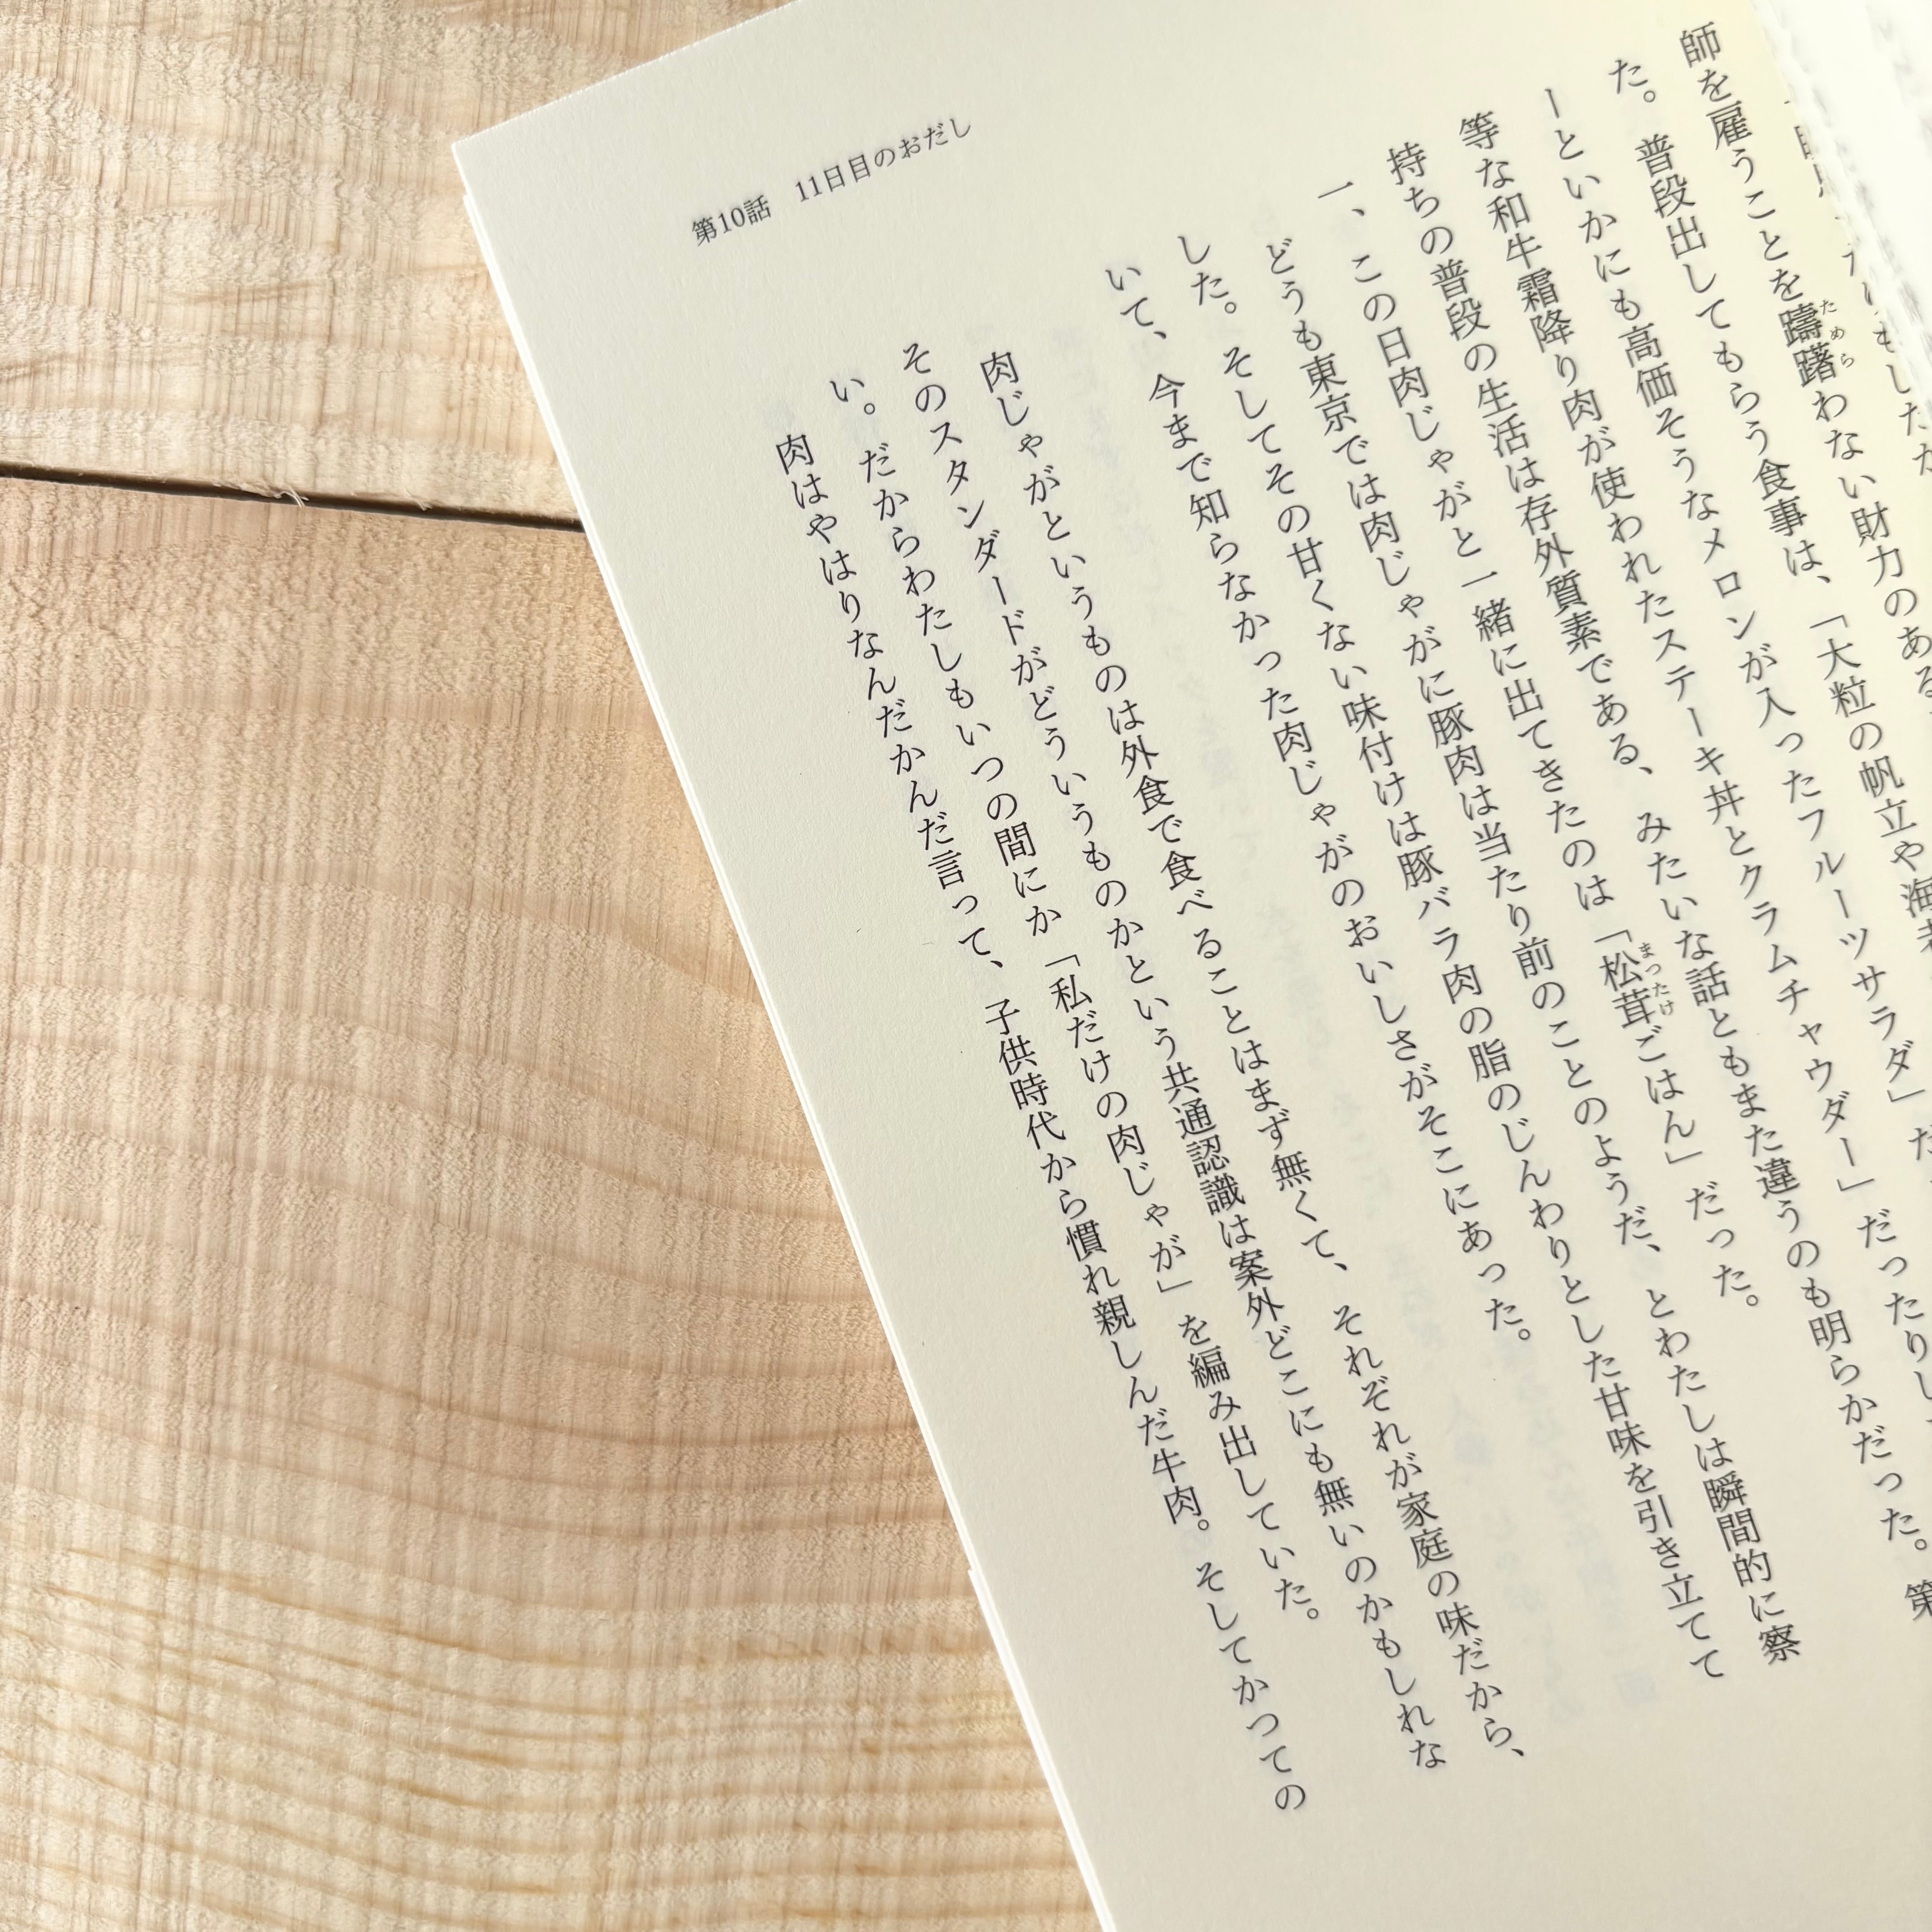 第10話　11日目のおだし
師を雇うことを躊躇わない財力のある
た。普段出してもらう食事は、「大粒の帆立や海
ーといかにも高価そうなメロンが入ったフルーツサラダ」だ
等な和牛霜降り肉が使われたステーキ丼とクラムチャウダー」だったりし
持ちの普段の生活は存外質素である、みたいな話ともまた違うのも明らかだった。第
一、この日肉じゃがと一緒に出てきたのは「松茸ごはん」だった。
どうも東京では肉じゃがに豚肉は当たり前のことのようだ、とわたしは瞬間的に察
した。そしてその甘くない味付けは豚バラ肉の脂のじんわりとした甘味を引き立てて
いて、今まで知らなかった肉じゃがのおいしさがそこにあった。
肉じゃがというものは外食で食べることはまず無くて、それぞれが家庭の味だから、
そのスタンダードがどういうものかという共通認識は案外どこにも無いのかもしれな
い。だからわたしもいつの間にか「私だけの肉じゃが」を編み出していた。
肉はやはりなんだかんだ言って、子供時代から慣れ親しんだ牛肉。そしてかつての